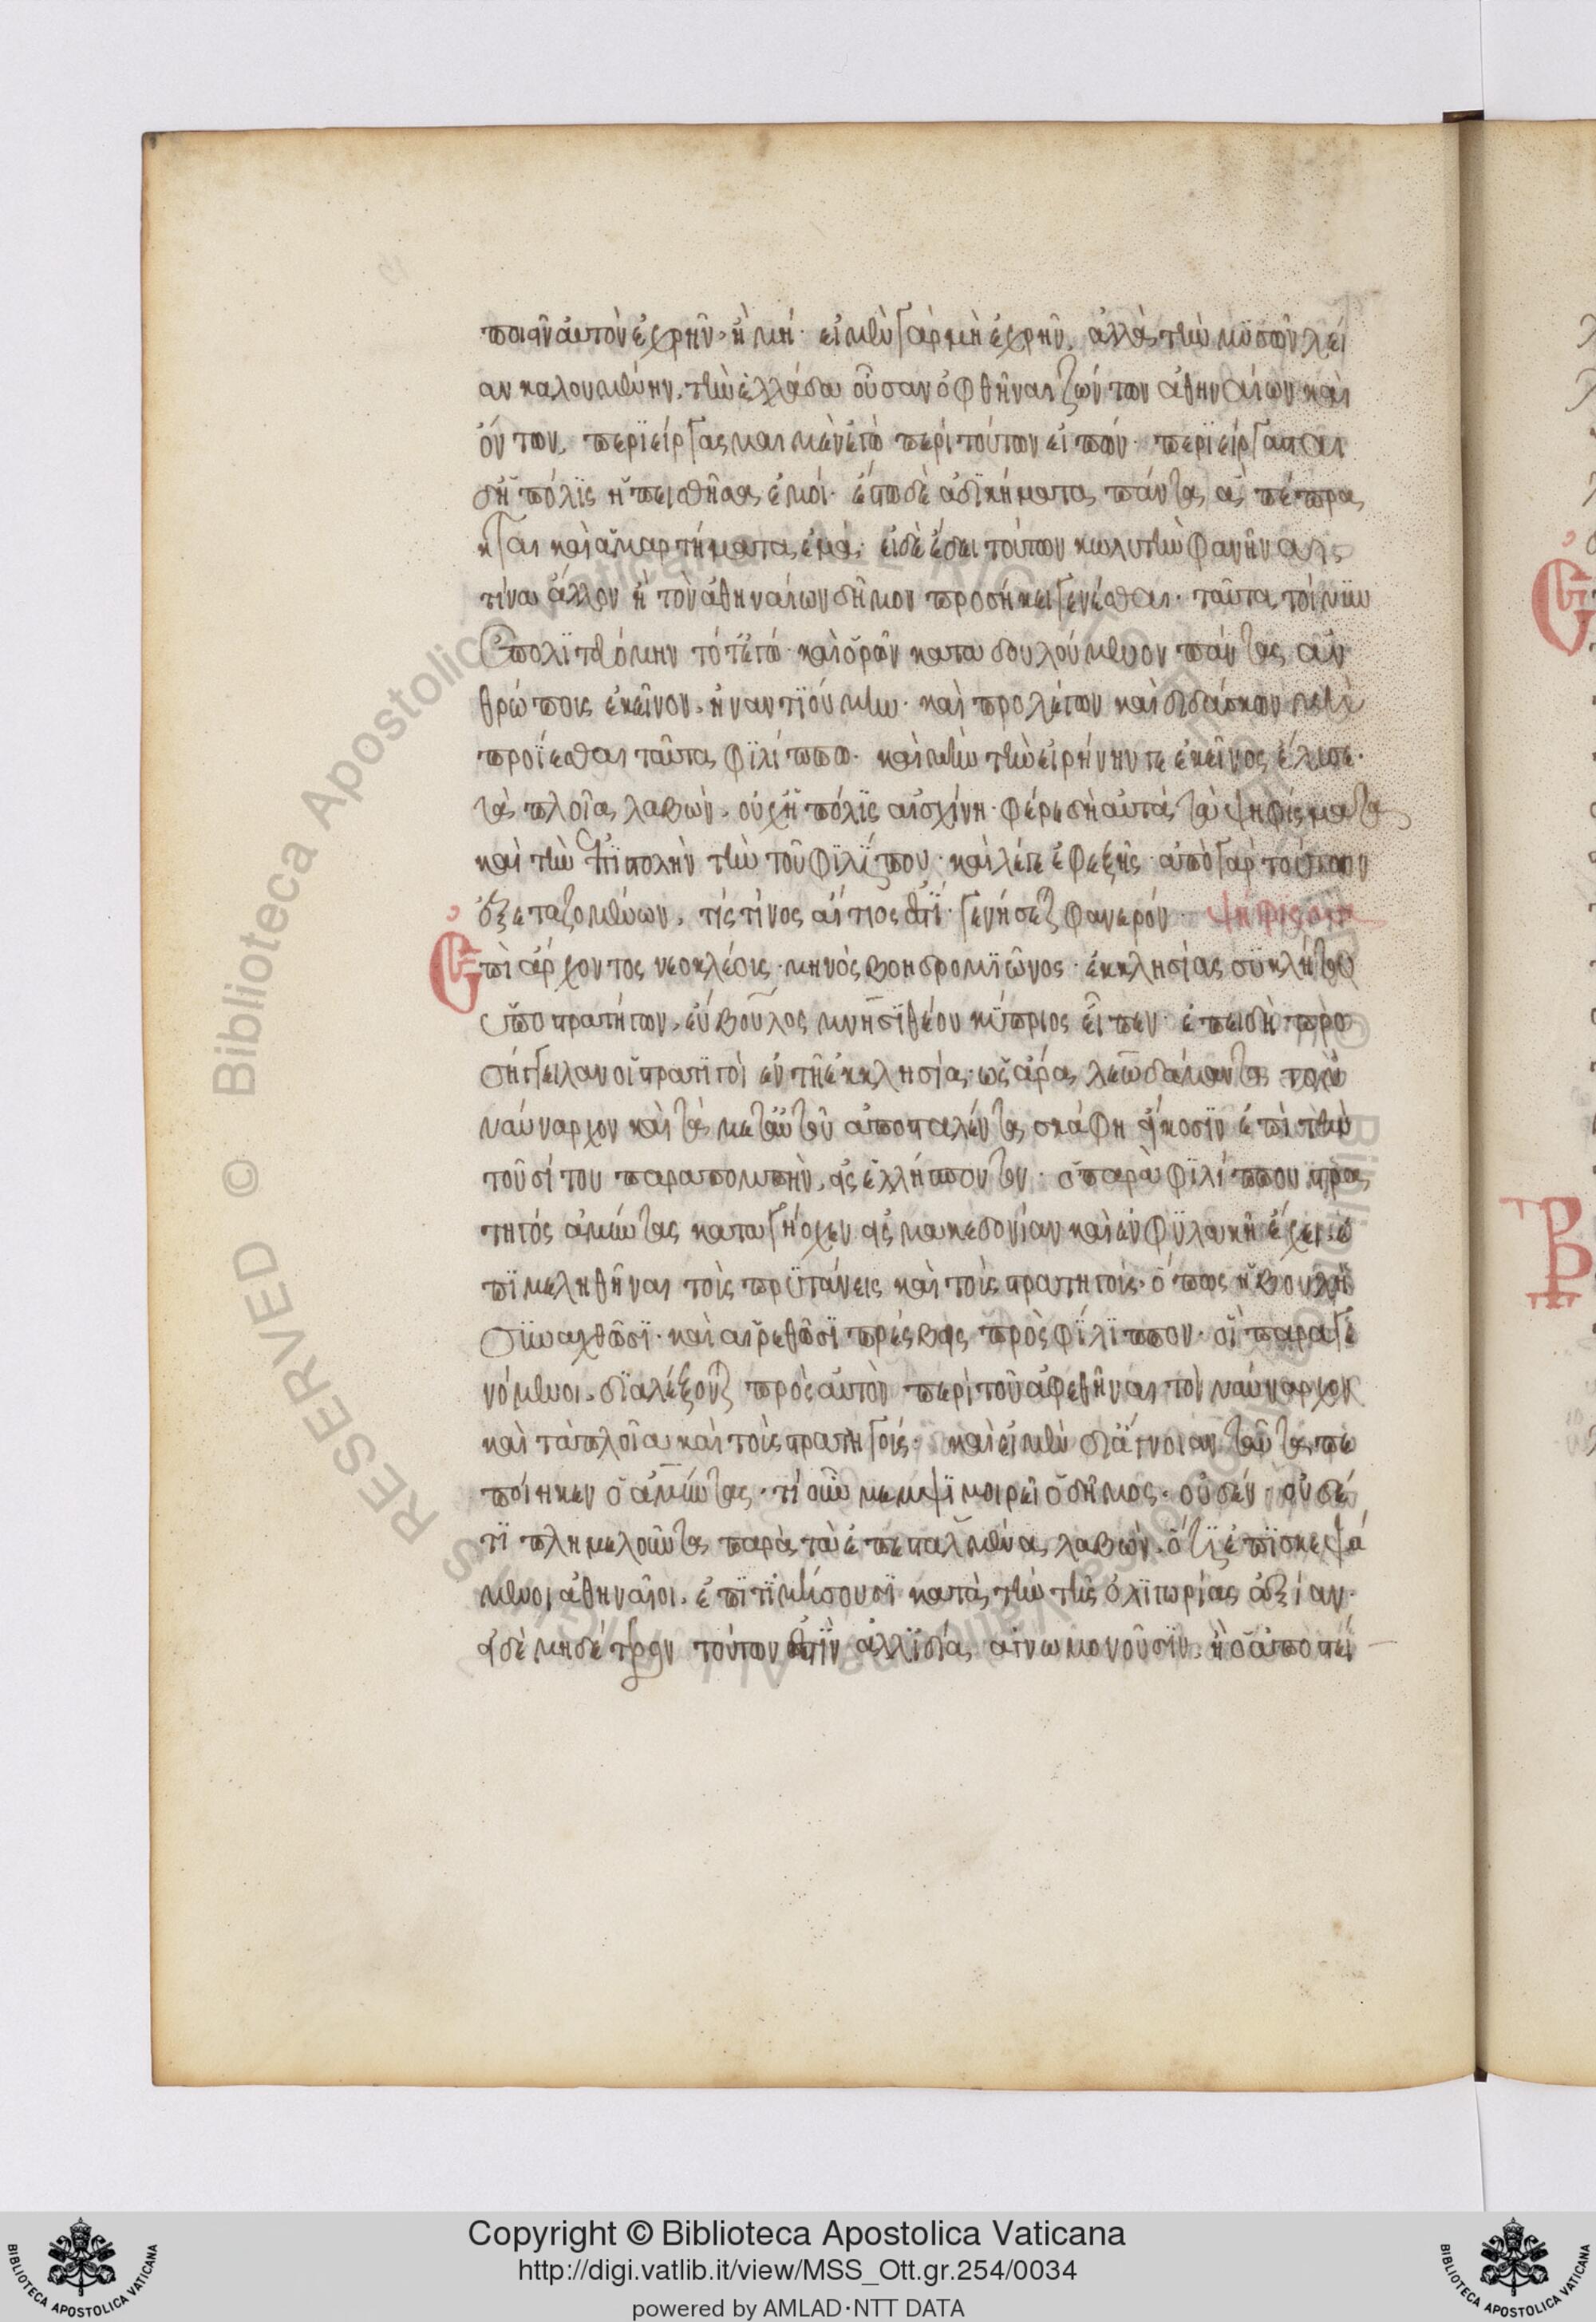 ποιεῖν αὐτὸν ἐχρῆν, ἢ μή· εἰ μὲν γὰρ μὴ ἐχρῆν, ἀλλὰ τὴν μυσῶν λεί
αν καλουμένην, τὴν ἑλλάδα οὖσαν ὀφθῆναι ζώντων ἀθηναίων καὶ
ὄντων, περιείργασμαι μὲν ἐγὼ περὶ τούτων εἰπών· περιείργασται
δ' ἡ πόλις ἡ πεισθεῖσα ἐμοί· ἔστω δὲ ἀδικήματα πάντα ἃ πέπρα
κται καὶ ἁμαρτήματα ἐμά· εἰ δὲ ἔδει τούτων κωλυτὴν φανῆναι
τίνα ἄλλον ἢ τὸν ἀθηναίων δῆμον προσήκει γενέσθαι· ταῦτα τοίνυν
ἐπολιτευόμην τότε ἐγώ· καὶ ὁρῶν καταδουλούμενον πάντας ἀν
θρώπους ἐκεῖνον, ἠναντιούμην· καὶ προλέγων καὶ διδάσκων μὴ
προΐεσθαι ταῦτα φιλίππω· καὶ μὴν τὴν εἰρήνην γε ἐκεῖνος ἔλυσε·
τὰ πλοῖα λαβών, οὐχ ἡ πόλις αἰσχίνη· φέρε δὴ αὐτὰ τὰ ψηφίσματα
καὶ τὴν ἐπιστολὴν τὴν τοῦ φιλίππου· καὶ λέγε ἐφεξῆς· ἀπὸ γὰρ τούτων
ἐξεταζομένων, τίς τίνος αἴτιός ἐστι· γενήσεται φανερόν· ψήφισμα
Ἐπὶ ἄρχοντος νεοκλέους· μηνὸς βοηδρομιῶνος· ἐκκλησίας συγκλήτου
ὑπὸ στρατηγῶν, εὔβουλος μνησιθέου κύπριος εἶπεν· ἐπειδὴ προ
σήγγειλαν οἱ στρατηγοὶ ἐν τῇ ἐκκλησία· ὡς ἄρα λεωδάμαντα τὸν
ναύαρχον καὶ τὰ μετ' αὐτοῦ ἀποσταλέντα σκάφη εἴκοσιν ἐπὶ τὴν
τοῦ σίτου παραπομπὴν, εἰς ἑλλήσποντον· ὁ παρὰ φιλίππου στρα
τηγὸς ἀμύντας καταγήοχεν εἰς μακεδονίαν καὶ ἐν φυλακῇ ἔχει· ἐ
πιμεληθῆναι τοὺς πρυτάνεις καὶ τοὺς στρατηγούς· ὅπως ἡ βουλὴ
συναχθῶσι· καὶ αἱρεθῶσι πρέσβεις πρὸς φίλιππον· οἳ παραγε
νόμενοι, διαλέξονται πρὸς αὐτὸν περὶ τοῦ ἀφεθῆναι τὸν ναύαρχον
καὶ τὰ πλοῖα καὶ τοὺς στρατηγούς· καὶ εἰ μὲν δι' ἄγνοιαν ταῦτα πε
ποίηκεν ὁ ἀμύντας· τί οὖν μεμψιμοιρεῖ ὁ δῆμος· οὐδέν· οὐδέ
τι πλημμελοῦντα παρὰ τὰ ἐπεσταλμένα λαβών, ὅτι ἐπισκεψά
μενοι ἀθηναῖοι, ἐπιτιμήσουσι κατὰ τὴν τῆς ὀλιγωρίας ἀξίαν·
εἰ δὲ μηδέτερον τούτων ἐστὶν ἀλλ' ἰδία ἀγνωμονοῦσιν, ἢ ὁ ἀποστεί
Copyright © Biblioteca Apostolica Vaticana
http://digi.vatlib.it/view/MSS_Ott.gr.254/0034
powered by AMLAD·NTT DATA